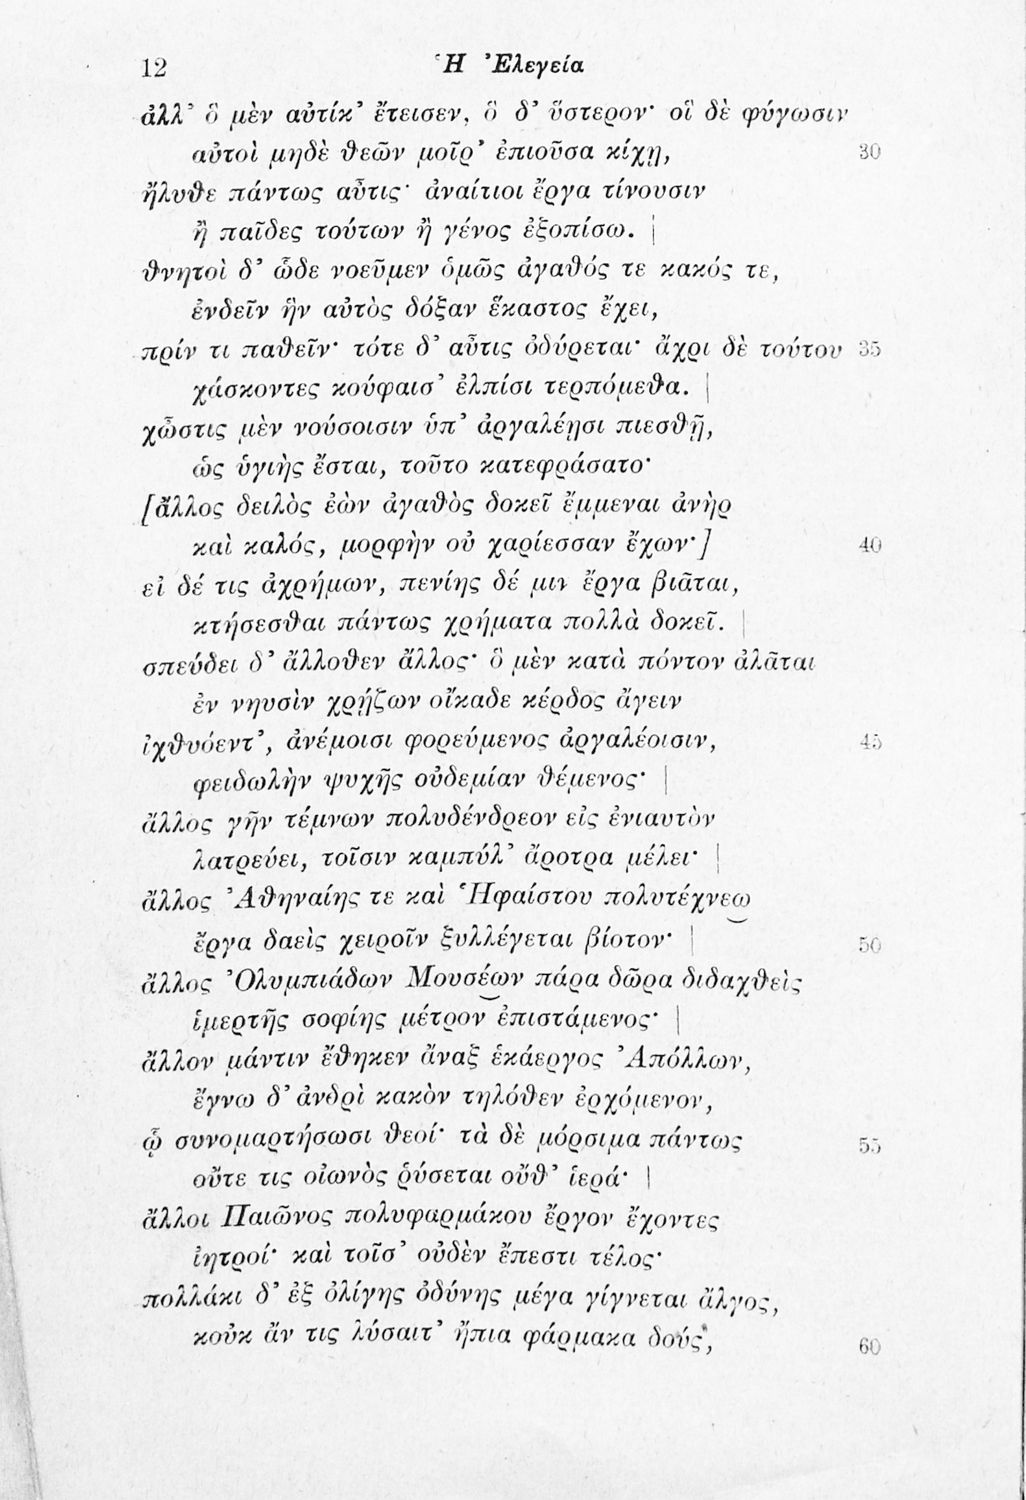 12 Ἡ Ἐλεγεία
ἀλλ’ ὃ μὲν αὐτίκ’ ἔτεισεν, ὃ δ’ ὕστερον· οἳ δὲ φύγωσιν
αὐτοὶ μηδὲ θεῶν μοῖρ’ ἐπιοῦσα κίχῃ, 30
ἤλυθε πάντως αὖτις· ἀναίτιοι ἔργα τίνουσιν
ἢ παῖδες τούτων ἢ γένος ἐξοπίσω. |
θνητοὶ δ’ ὧδε νοεῦμεν ὁμῶς ἀγαθός τε κακός τε,
ἐνδεῖν ἣν αὐτὸς δόξαν ἕκαστος ἔχει,
πρίν τι παθεῖν· τότε δ’ αὖτις ὀδύρεται· ἄχρι δὲ τούτου 35
χάσκοντες κούφαισ’ ἐλπίσι τερπόμεθα. |
χὦστις μὲν νούσοισιν ὑπ’ ἀργαλέῃσι πιεσθῇ,
ὡς ὑγιὴς ἔσται, τοῦτο κατεφράσατο·
[ἄλλος δειλὸς ἐὼν ἀγαθὸς δοκεῖ ἔμμεναι ἀνὴρ
καὶ καλός, μορφὴν οὐ χαρίεσσαν ἔχων·] 40
εἰ δέ τις ἀχρήμων, πενίης δέ μιν ἔργα βιᾶται,
κτήσεσθαι πάντως χρήματα πολλὰ δοκεῖ. |
σπεύδει δ’ ἄλλοθεν ἄλλος· ὃ μὲν κατὰ πόντον ἀλᾶται
ἐν νηυσὶν χρῄζων οἴκαδε κέρδος ἄγειν
ἰχθυόεντ’, ἀνέμοισι φορεύμενος ἀργαλέοισιν, 45
φειδωλὴν ψυχῆς οὐδεμίαν θέμενος· |
ἄλλος γῆν τέμνων πολυδένδρεον εἰς ἐνιαυτὸν
λατρεύει, τοῖσιν καμπύλ’ ἄροτρα μέλει· |
ἄλλος Ἀθηναίης τε καὶ Ἡφαίστου πολυτέχνεω
ἔργα δαεὶς χειροῖν ξυλλέγεται βίοτον· | 50
ἄλλος Ὀλυμπιάδων Μουσέων πάρα δῶρα διδαχθεὶς
ἱμερτῆς σοφίης μέτρον ἐπιστάμενος· |
ἄλλον μάντιν ἔθηκεν ἄναξ ἑκάεργος Ἀπόλλων,
ἔγνω δ’ ἀνδρὶ κακὸν τηλόθεν ἐρχόμενον,
ᾧ συνομαρτήσωσι θεοί· τὰ δὲ μόρσιμα πάντως 55
οὔτε τις οἰωνὸς ῥύσεται οὔθ’ ἱερά· |
ἄλλοι Παιῶνος πολυφαρμάκου ἔργον ἔχοντες
ἰητροί· καὶ τοῖσ’ οὐδὲν ἔπεστι τέλος·
πολλάκι δ’ ἐξ ὀλίγης ὀδύνης μέγα γίγνεται ἄλγος,
κοὐκ ἄν τις λύσαιτ’ ἤπια φάρμακα δούς, 60